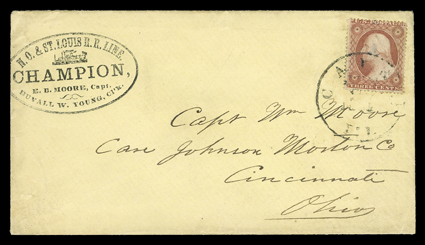 N.O. & ST. LOUIS R.R. LINE,
CHAMPION,
E. B. MOORE, Capt.
DUVALL W. YOUNG, Clk.
THREE CENTS
Capt Wm Moore
Care Johnson Morton & Co
Cincinnati
Ohio